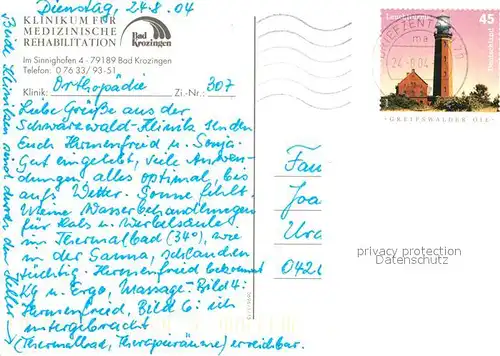 Dienstag, 24.8.04
KLINIKUM FÜR
MEDIZINISCHE
REHABILITATION
Bad
Krozingen
Im Sinnighofen 4 - 79189 Bad Krozingen
Telefon: 0 76 33/ 93-51
Klinik: Orthopädie Zi.-Nr.: 307
Liebe Grüße aus der
Schwarzwald-Klinik senden
Euch Hermenfried u. Sonja.
Gut eingelebt, viele Anwen-
dungen alles optimal, bis
aufs Wetter. Sonne fehlt.
Meine Wasserbehandlungen
für Hals u. Wirbelsäule
im Thermalbad (34°), wie
in der Sauna, schlauchen
tüchtig. Hermenfried bekommt
KG u. Ergo, Massage. Bild 4:
Hermenfried, Bild 6: ich
untergebracht
(Thermalbad, Therapieräume) erreichbar.
Beide Kliniken sind durch den Keller →
Leuchttürme
45
Deutschland
BRIEFZENTRUM
ma
24.-8.04
GREIFSWALDER OIE
Fam
Joa
Ura
042
privacy protection
Datenschutz